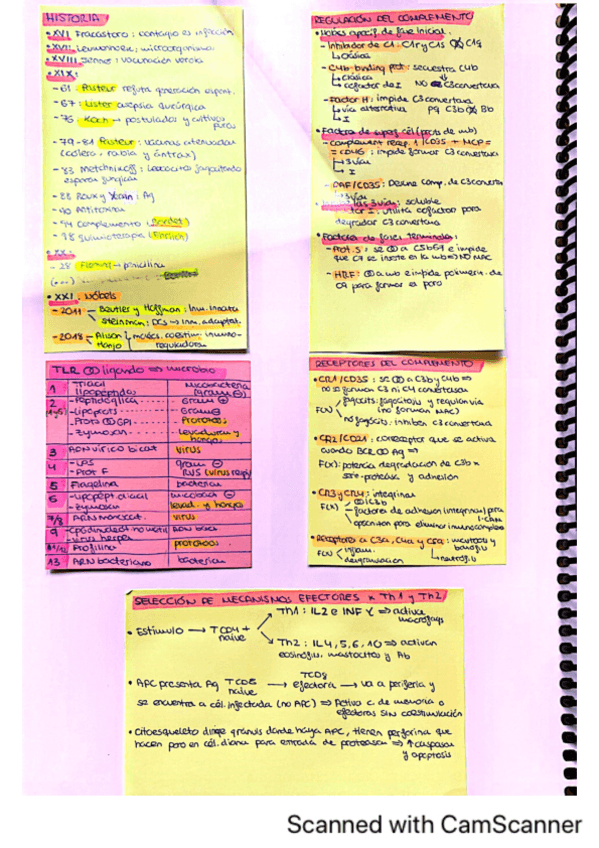 HISTORIA
• XVI Fracastoro: contagio es infección
• XVII Leuwenhoek: microorganismos
• XVIII Jenner: vacunación viruela
• XIX:
- 61 Pasteur refuta generación espont.
- 67: Lister asepsia quirúrgica
- 76 Koch → postulados y cultivos puros
- 79-81 Pasteur: vacunas atenuadas
(cólera, rabia y ántrax)
- 83 Metchnikoff: leucocitos fagocitando
esporas fúngicas
- 88 Roux y
- 90 Antitoxina
- 94 complemento (Bordet)
- 98 quimioterapia (Ehrlich)
• XX:
- 28 Fleming → penicilina
(...)
• XXI: Nóbels
- 2011 Beutler y Hoffman: Inm. innata
Steinman: DCs → Inm. adaptat.
- 2018 Alison
Honjo
moléc. coestim. inmuno-
reguladoras
REGULACIÓN DEL COMPLEMENTO
- Inhibidor de C1: C1r y C1s C1q
↳ Clásica
- C4b binding prot: secuestra C4b
↳ clásica
↳ cofactor de I NO C3 convertasa
- Factor H: impide C3 convertasa
↳ vía alternativa pq C3b Bb
↳ I
• Factores de superf. cél (prots de mb)
- complement recep. 1/CD35 = MCP =
= CD46: impide formar C3 convertasa
↳ 3 vías
↳ I
- DAF/CD55: Desune comp. de C3 convertasa
3 vías: soluble
tor I: utiliza cofactor para
degradar C3 convertasa
• Factores de fases terminales:
- Prot. S: se a C5b67 e impide
que C9 se inserte en la mb ⇒ NO MAC
- HRF: a mb e impide polimeriz. de
C9 para formar el poro
TLR ligando ⇒ microbio
1 Triacil lipopéptidos Micobacteria (gram ⊖)
2 - Peptidoglica Gram ⊕
(1 y 6) - Lipoprots Gram ⊖
- Prots GPI Protozoos
- Zymosan Levaduras y hongos
3 ADN vírico bicat virus
4 - LPS gram ⊖
- Prot F RVS (virus resp)
5 Flagelina bacterias
6 - lipopépt diacil micobact ⊖
- zymosan levad. y hongos
7/8 ARN monocat. virus
9 - virus herpes
11/12 Profilina protozoos
13 ARN bacteriano bacterias
RECEPTORES DEL COMPLEMENTO
• CR1/CD35: se a C3b y C4b ⇒
no se forman C3 ni C4 convertasas
F(x) fagocits: fagocitosis y reconocen vía
(no forman MAC)
no fagocits: inhiben C3 convertasa
• CR2/CD21: correceptor que se activa
cuando BCR Ag ⇒
F(x): potencia degradación de C3b x
proteasa y adhesión
• CR3 y CR4: integrinas
F(x) iC3b
factores de adhesión (integrinas) para
opsonizan para eliminar inmunocomplejos
• Receptores a C3a, C4a y C5a: neutrófs y
basófilo
F(x) inflam.
desgranulación
SELECCIÓN DE MECANISMOS EFECTORES x Th1 y Th2
• Estímulo → TCD4+ naive
Th1: IL2 e INF γ ⇒ activa macrófags
Th2: IL4, 5, 6, 10 ⇒ activan
eosinófilo, mastocitos y Ab
• APC presenta Ag TCD8 naive → TCD8 efectora → va a periferia y
se encuentra a cél. infectada (no APC) ⇒ Activa c. de memoria o
efectoras sin coestimulación
• Citoesqueleto dirige gránuls donde haya APC, tienen perforina que
hacen poro en cél. diana para entrada de proteasas ⇒ ↑ caspasas
y apoptosis
Scanned with CamScanner